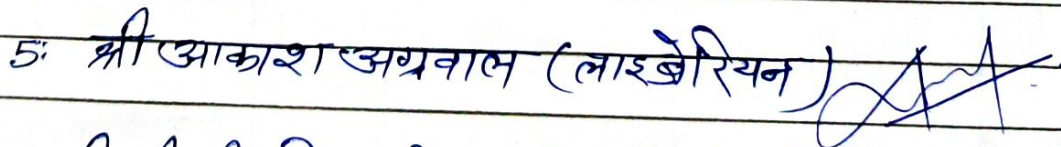 5: श्री आकाश अग्रवाल (लाइब्रेरियन)